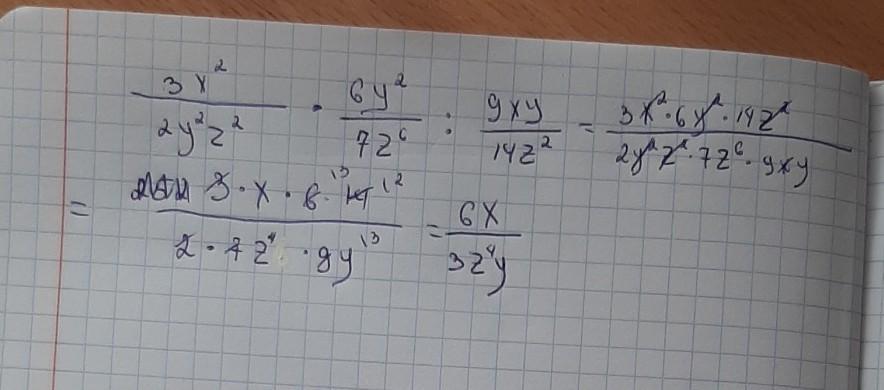 3x² / 2y²z² · 6y² / 7z⁶ : 9xy / 14z² = 3x²·6y²·14z² / 2y²z²·7z⁶·9xy
= 3·x·6·14 / 2·7z⁴·9y = 6x / 3z⁴y